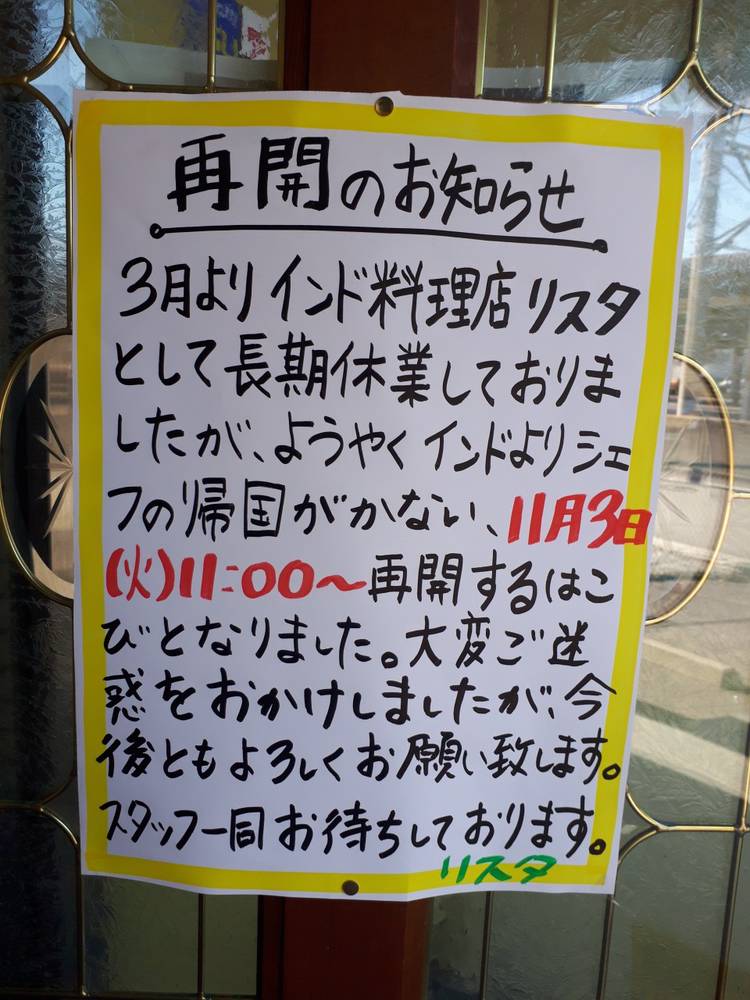 再開のお知らせ
3月よりインド料理店リスタ
として長期休業しておりま
したが、ようやくインドよりシェ
フの帰国がかない、11月3日
(火)11:00～再開するはこ
びとなりました。大変ご迷
惑をおかけしましたが、今
後ともよろしくお願い致します。
スタッフ一同お待ちしております。
リスタ